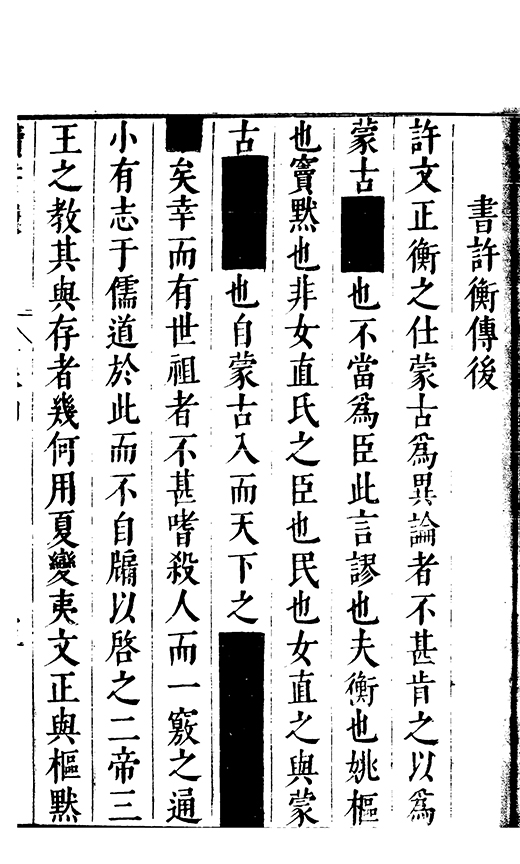 書許衡傳後
許文正衡之仕蒙古爲異論者不甚肯之以爲
蒙古也不當爲臣此言謬也夫衡也姚樞
也竇默也非女直氏之臣也民也女直之與蒙
古也自蒙古入而天下之
矣幸而有世祖者不甚嗜殺人而一竅之通
小有志于儒道於此而不自牖以啓之二帝三
王之教其與存者幾何用夏變夷文正與樞默